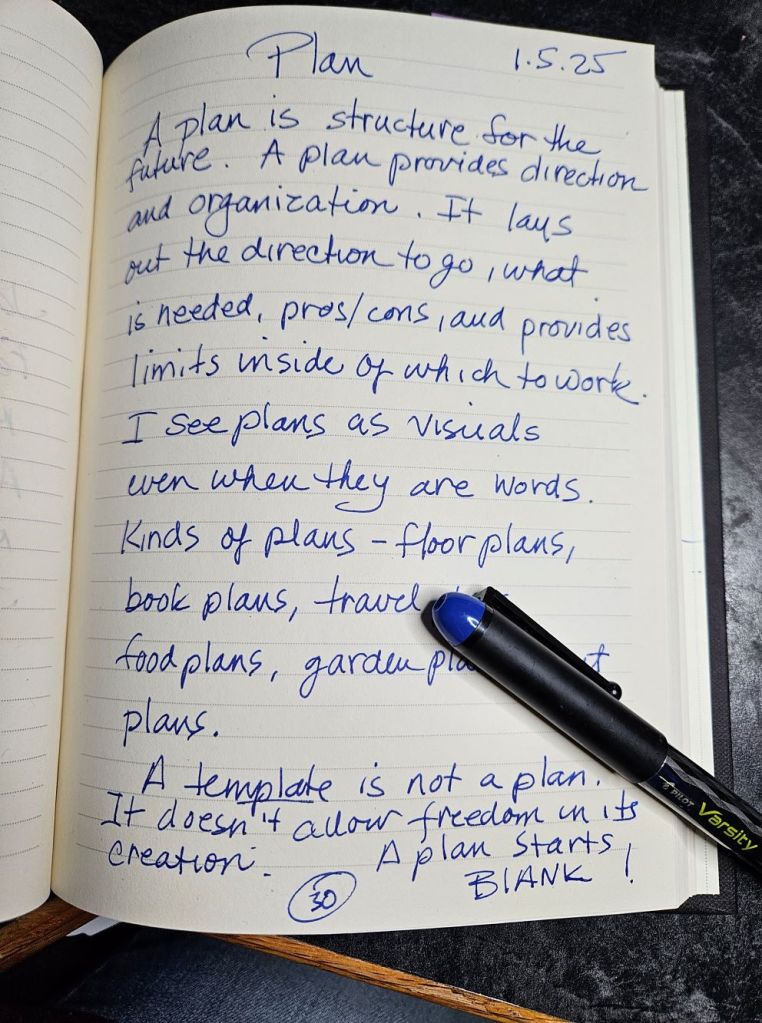 Plan 1.5.25
A plan is structure for the
future. A plan provides direction
and organization. It lays
out the direction to go, what
is needed, pros/cons, and provides
limits inside of which to work.
I see plans as visuals
even when they are words.
Kinds of plans - floor plans,
book plans, travel
food plans, garden
plans.
A template is not a plan.
It doesn't allow freedom in its
creation. A plan starts
BLANK!
30
PILOT Varsity